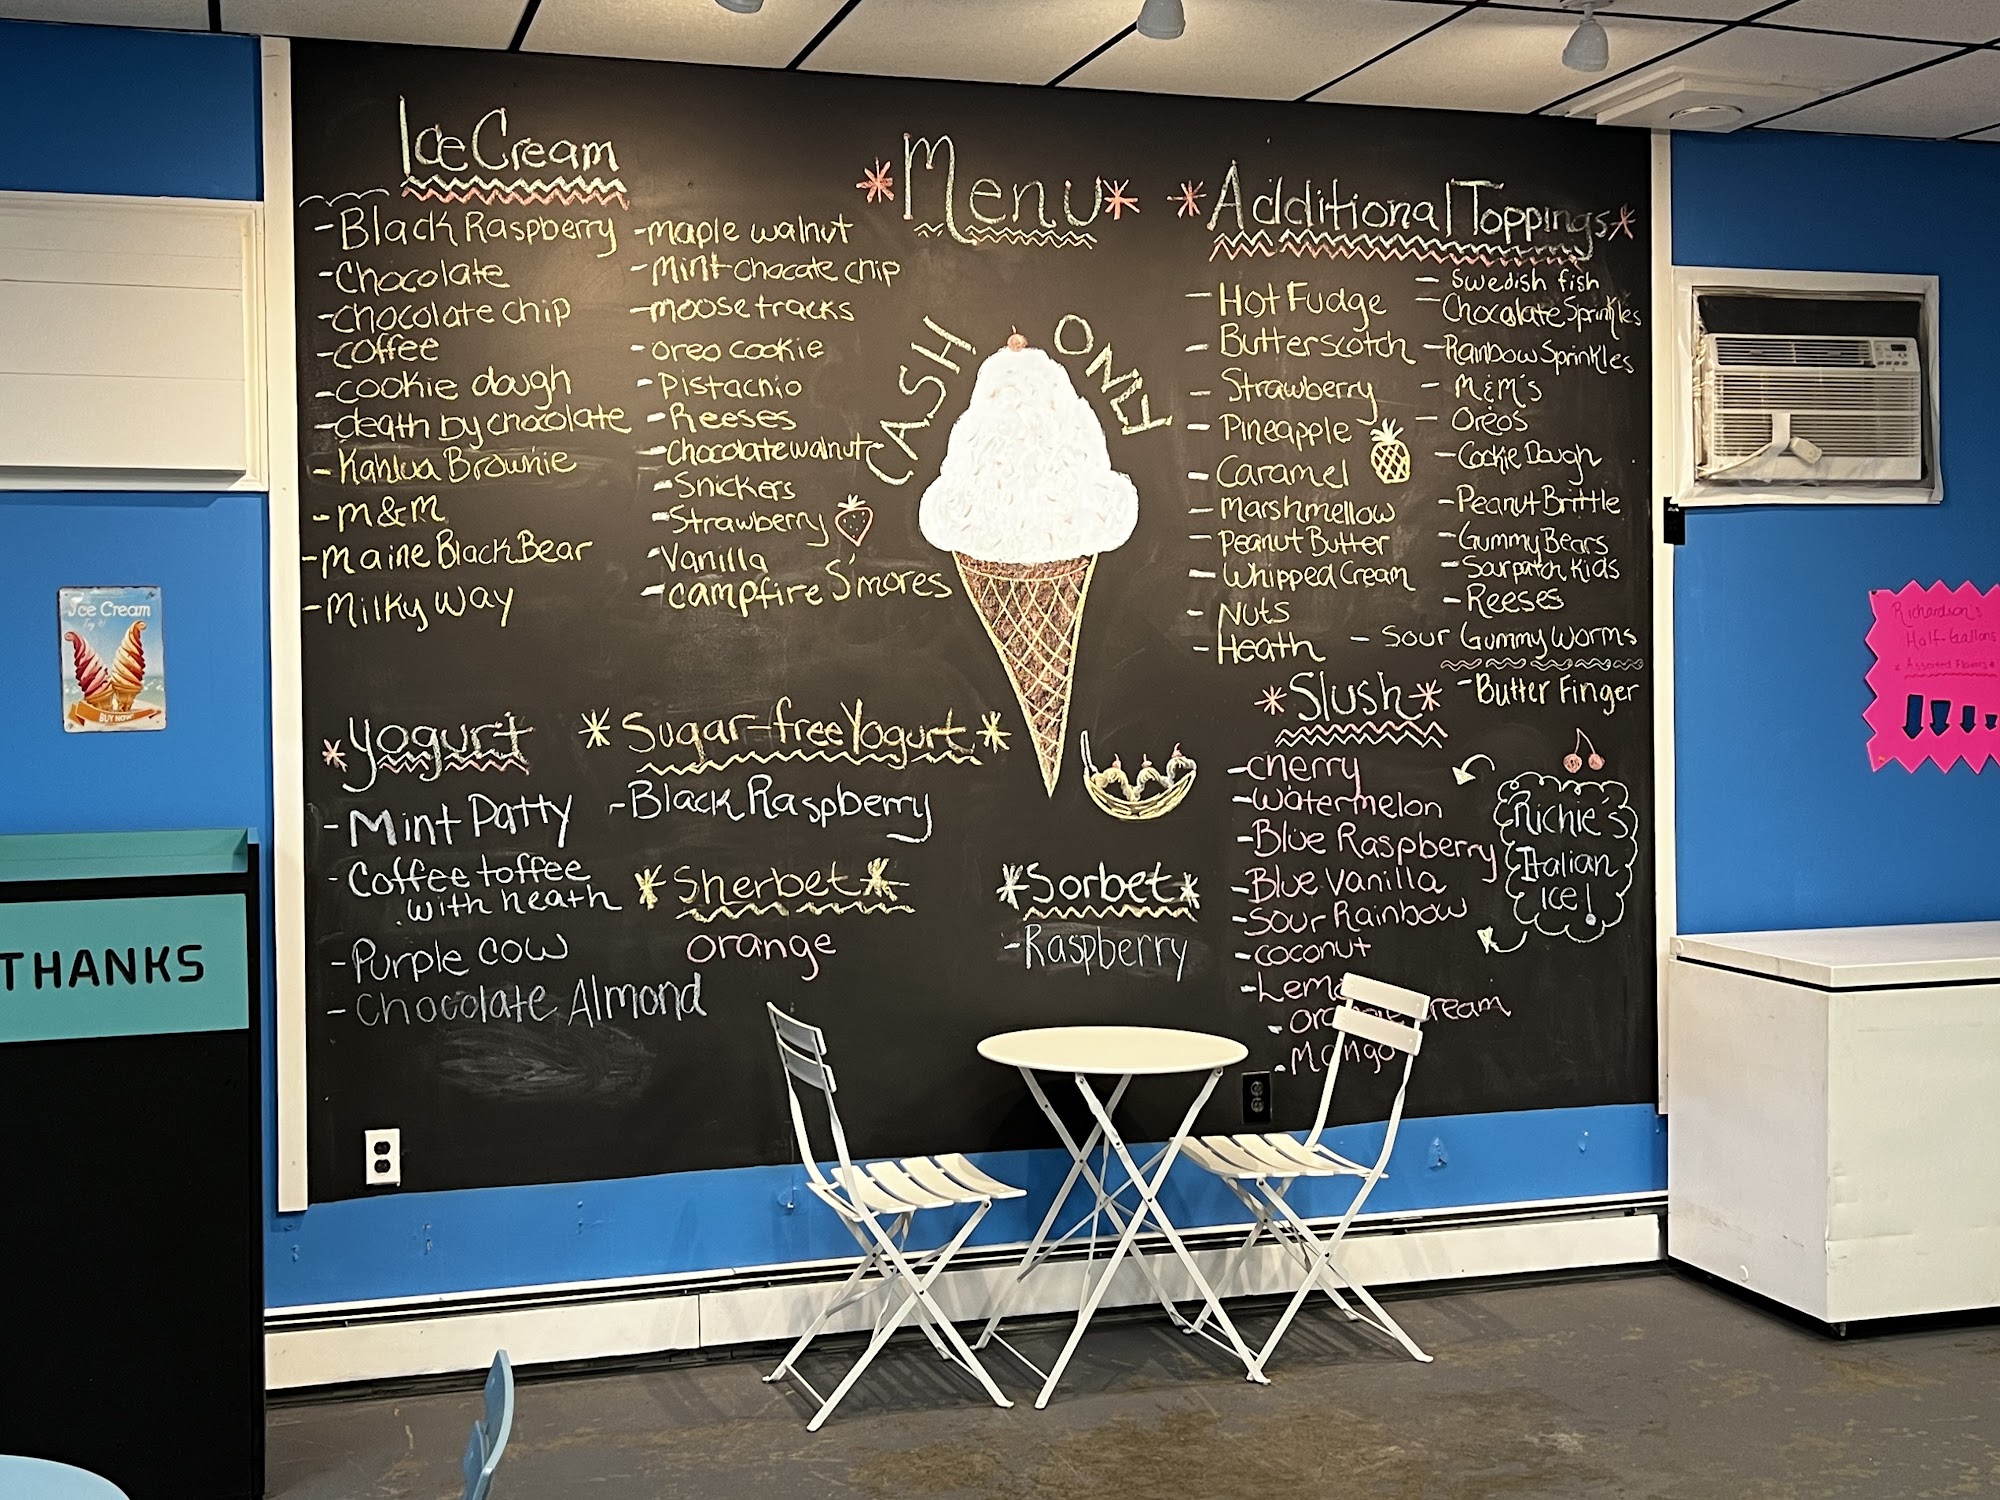 Ice Cream
- Black Raspberry
- Chocolate
- Chocolate chip
- coffee
- cookie dough
- death by chocolate
- Kahlua Brownie
- M & M
- Maine Black Bear
- Milky Way
- maple walnut
- Mint chocate chip
- moose tracks
- oreo cookie
- Pistachio
- Reeses
- Chocolate walnut
- Snickers
- Strawberry
- Vanilla
- campfire S'mores
* Menu *
CASH ONLY
* Additional Toppings *
- Hot Fudge
- Butterscotch
- Strawberry
- Pineapple
- Caramel
- Marshmellow
- Peanut Butter
- Whipped Cream
- Nuts
- Heath
- Swedish fish
- Chocolate Sprinkles
- Rainbow Sprinkles
- M&M's
- Oreos
- Cookie Dough
- Peanut Brittle
- Gummy Bears
- Sourpatch Kids
- Reeses
- Sour Gummy Worms
- Butter Finger
* Yogurt
- Mint Patty
- Coffee toffee
with heath
- Purple cow
- Chocolate Almond
* Sugar-free Yogurt *
- Black Raspberry
* Sherbet *
orange
* Sorbet *
- Raspberry
* Slush *
- cherry
- watermelon
- Blue Raspberry
- Blue Vanilla
- Sour Rainbow
- coconut
- Mango
Richie's
Italian
Ice!
Ice Cream
Try it!
BUY NOW
THANKS
Richardson's
Half-Gallons
* Assorted Flavors *